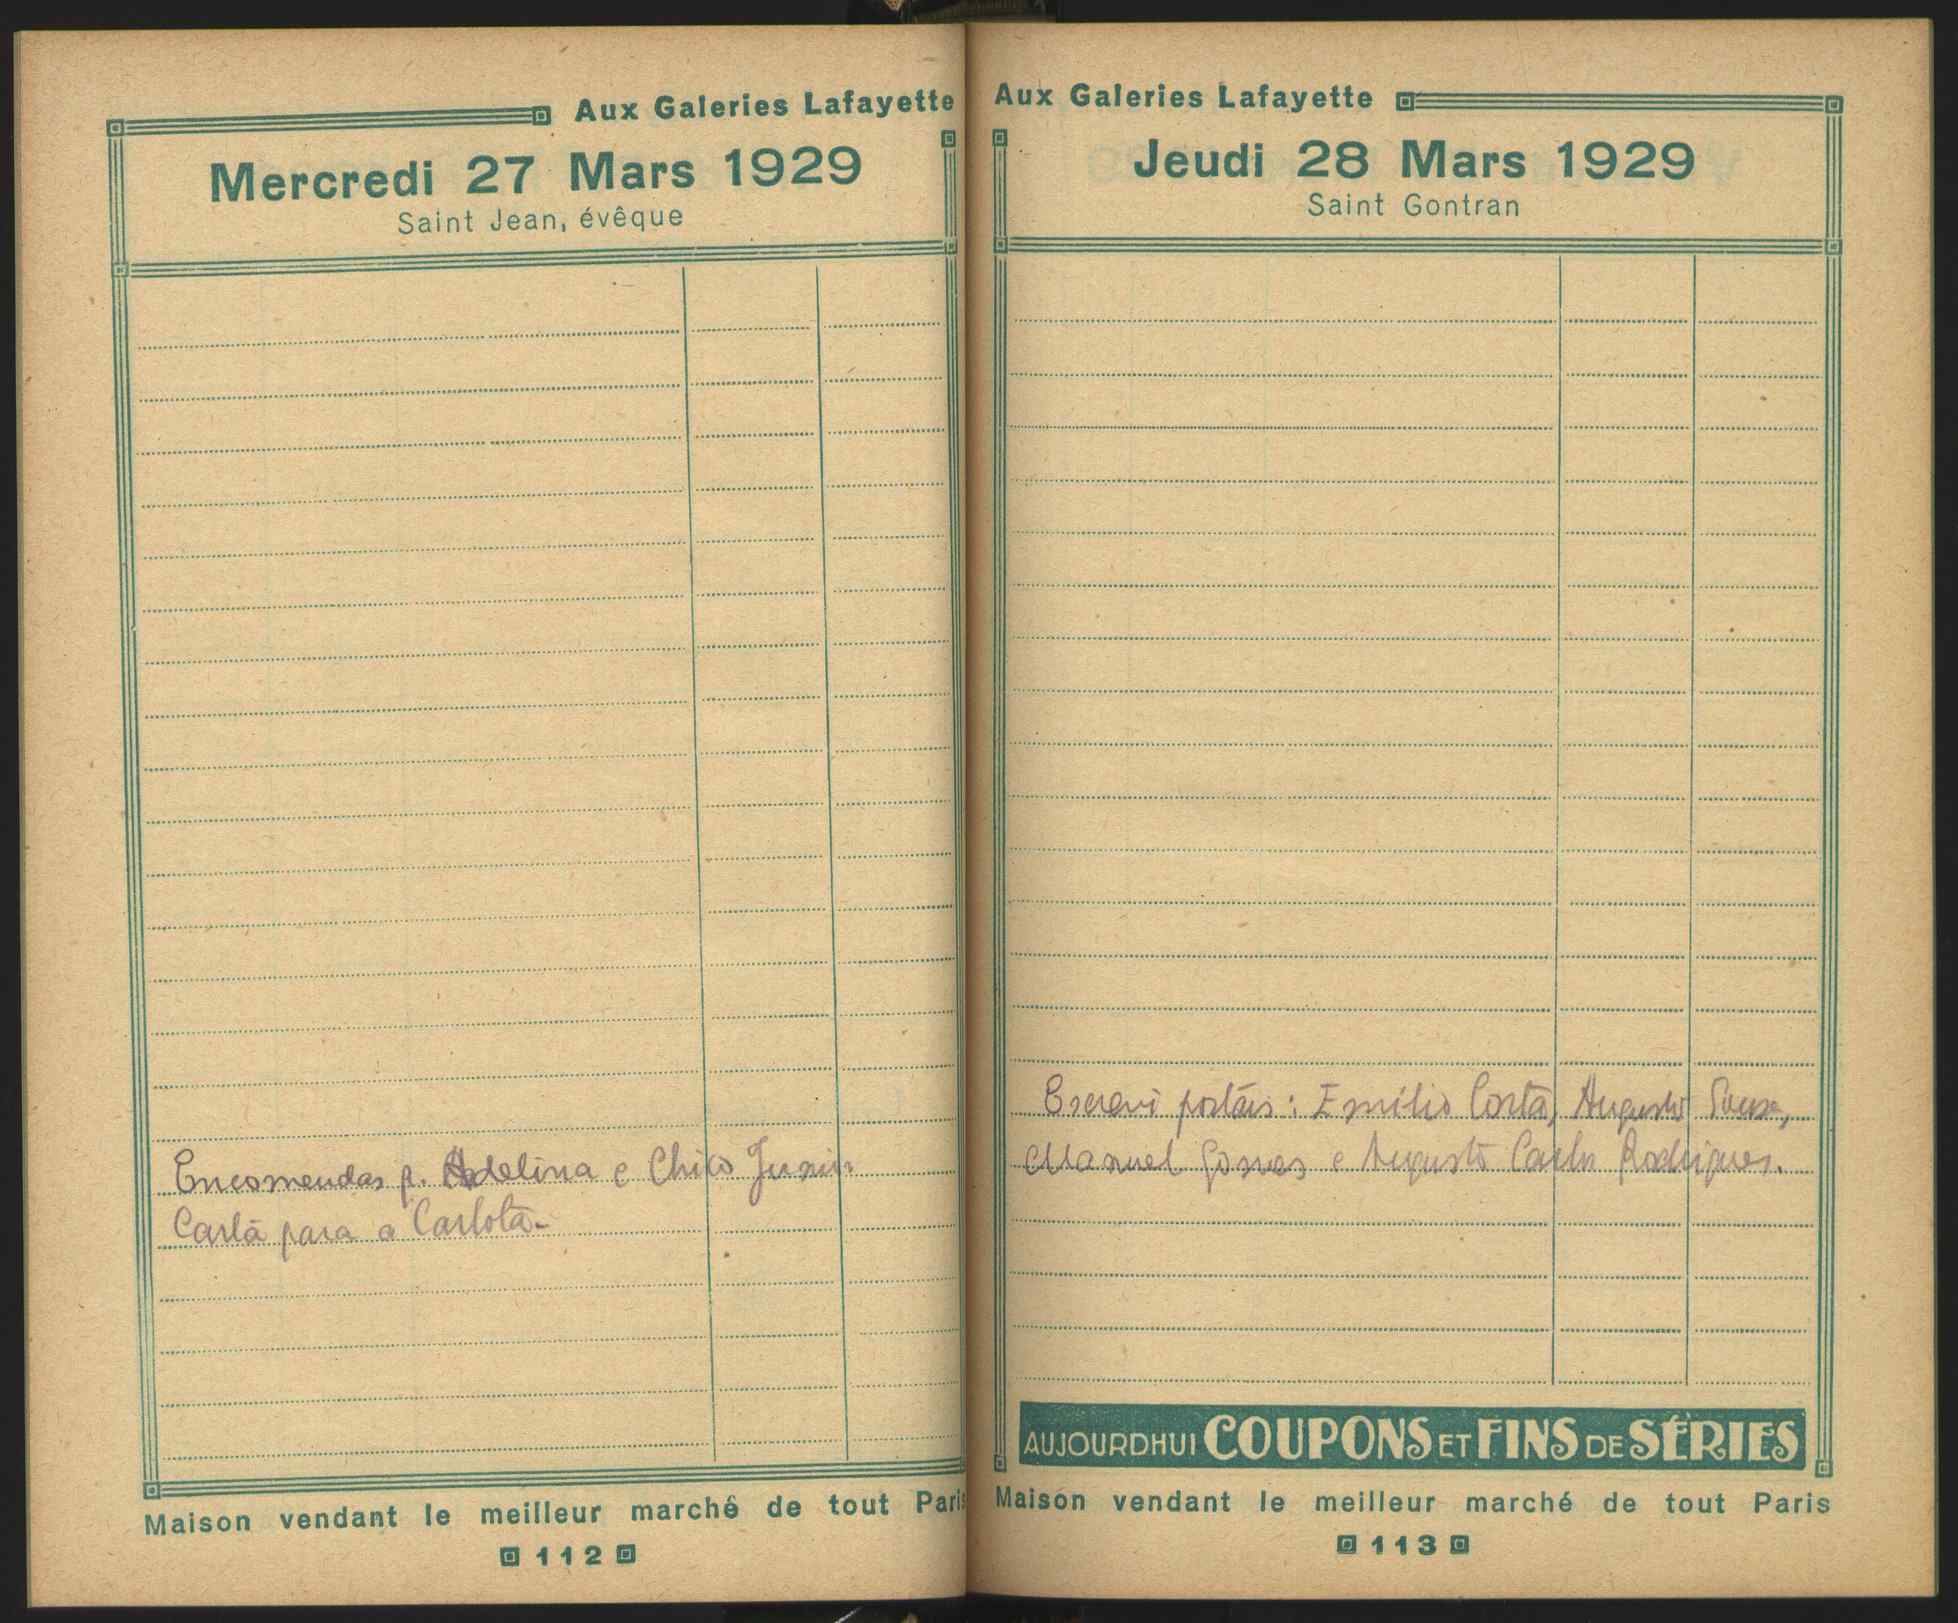 Aux Galeries Lafayette
Mercredi 27 Mars 1929
Saint Jean, évêque
Encomendas p. Adelina e Chico Junior
Carta para a Carlota-
Maison vendant le meilleur marché de tout Paris
112
Aux Galeries Lafayette
Jeudi 28 Mars 1929
Saint Gontran
Escrevi postais: Emílio Costa, Augusto Sousa,
Manuel Gomes e Augusto Carlos Rodrigues.
AUJOURDHUI COUPONS ET FINS DE SÉRIES
Maison vendant le meilleur marché de tout Paris
113